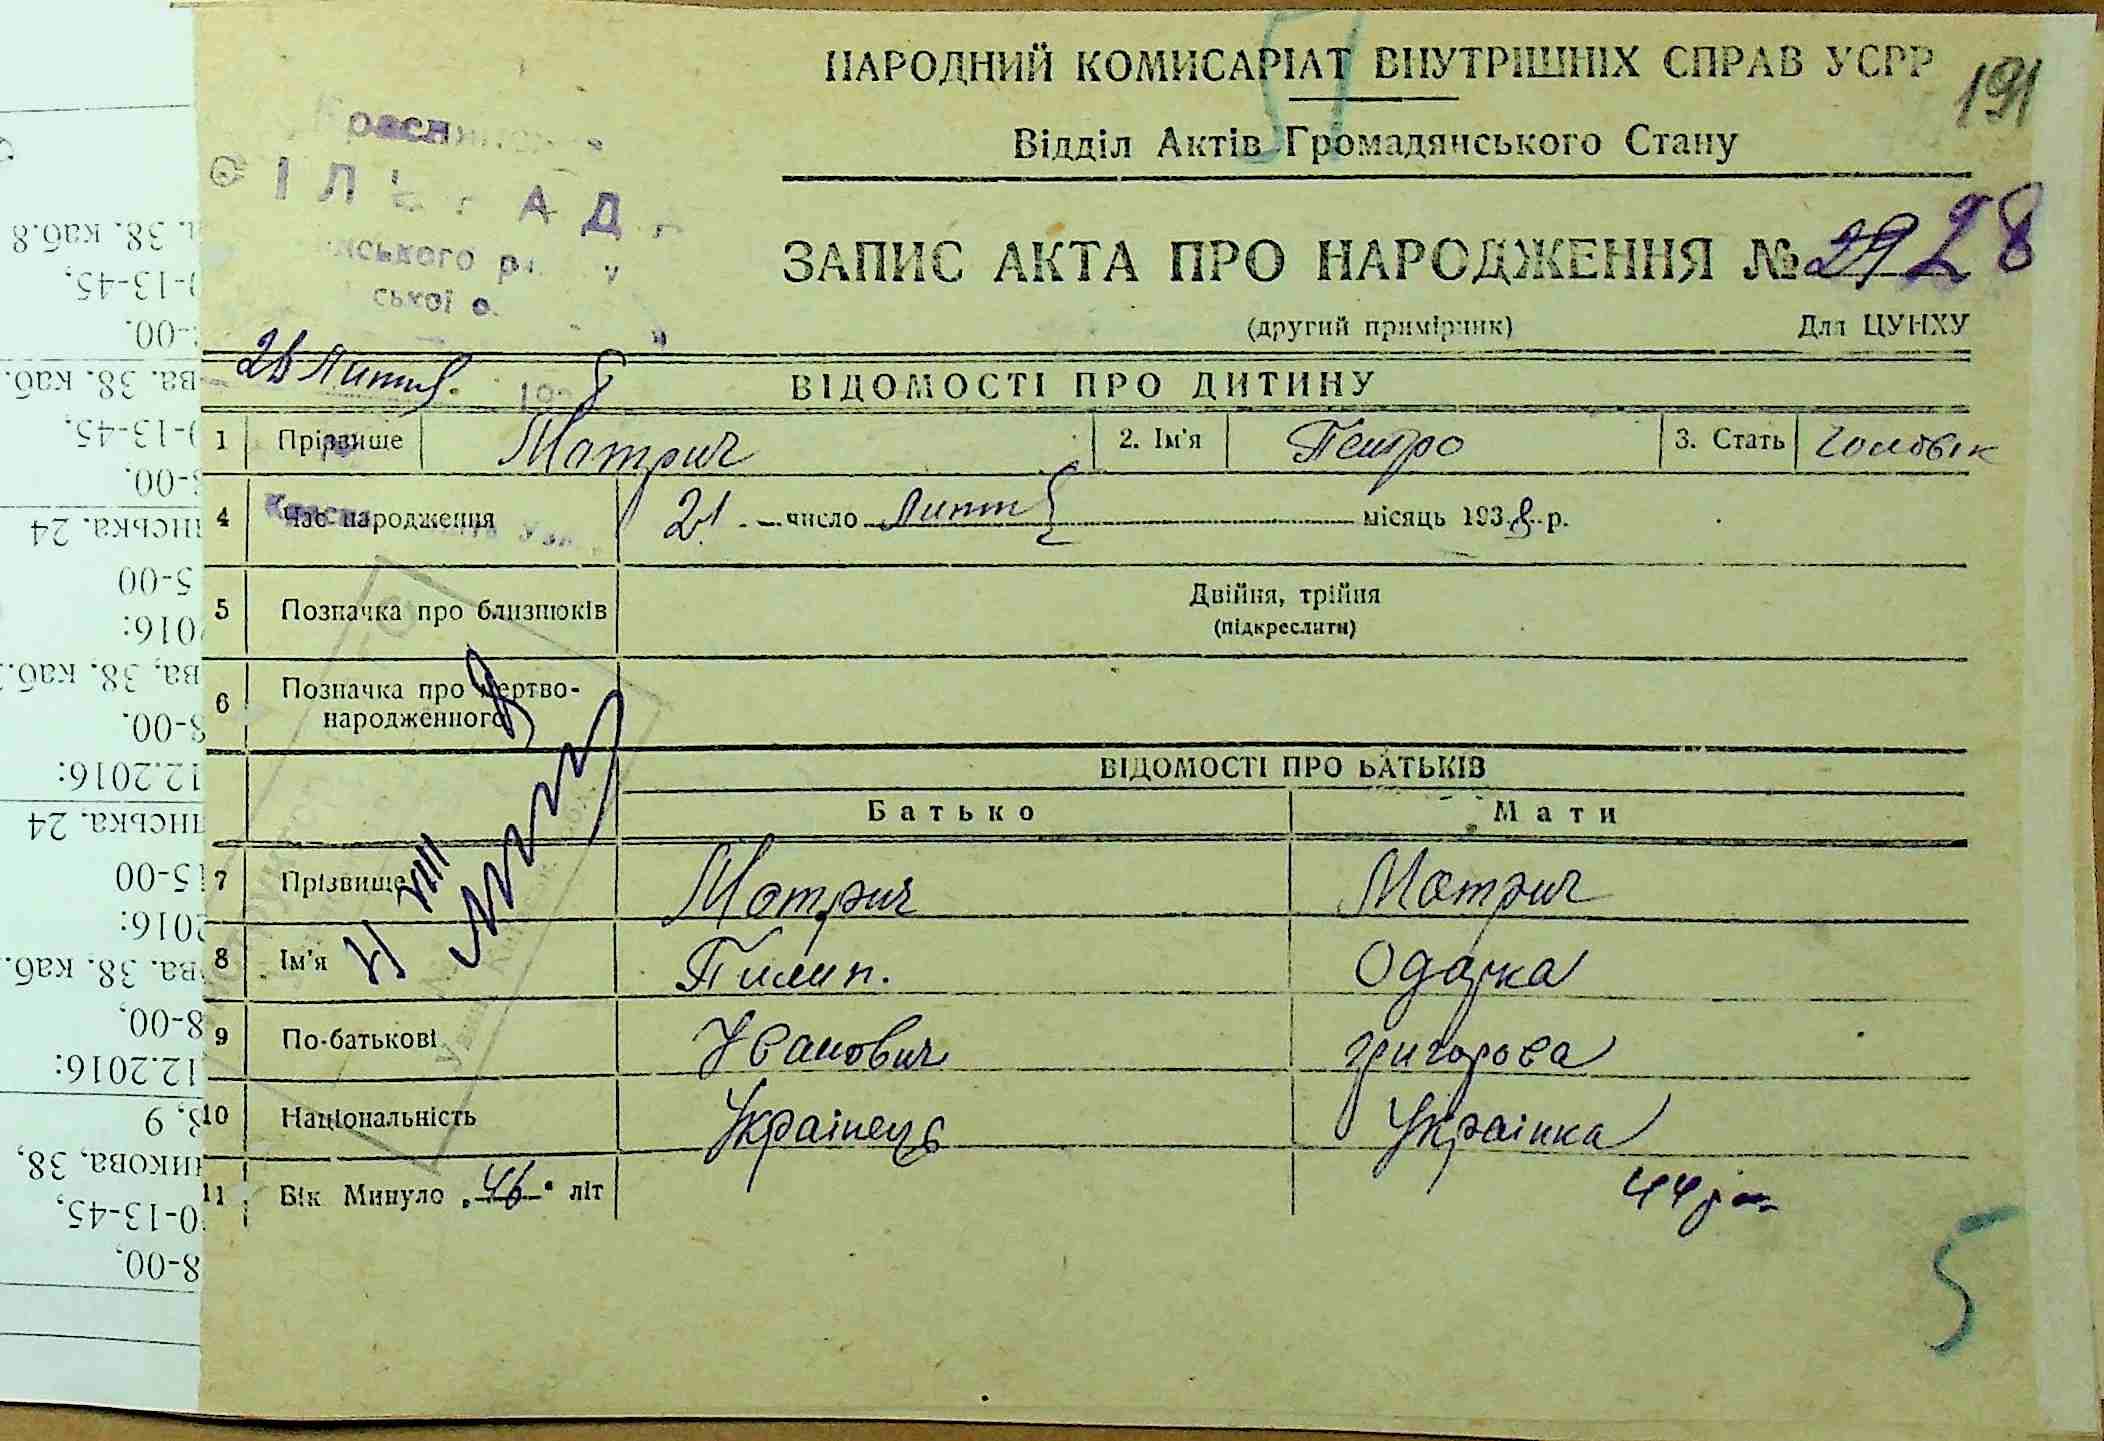 НАРОДНИЙ КОМИСАРІАТ ВНУТРІШНІХ СПРАВ УСРР
191
Відділ Актів Громадянського Стану
51
СІЛЬРАДА
ського
ської о.
ЗАПИС АКТА ПРО НАРОДЖЕННЯ № 29 28
(другий примірник) Для ЦУНХУ
ВІДОМОСТІ ПРО ДИТИНУ
1 Прізвище Матрич 2. Ім'я Петро 3. Стать
4 Час народження 21 число місяць 1938 р.
5 Позначка про близнюків Двійня, трійня
(підкреслити)
6 Позначка про мертво-
народженного
ВІДОМОСТІ ПРО БАТЬКІВ
Батько Мати
7 Прізвище Матрич Матрич
8 Ім'я Пилип. Одарка
9 По-батькові Іванович григорова
10 Національність Українець Українка
11 Вік Минуло „46“ літ 44
5
38. каб.8
0-13-45,
38. каб.
0-13-45,
24
5-00
2016:
38. каб.
12.2016:
24
15-00
2016:
38. каб.
8-00,
12.2016:
38,
0-13-45,
8-00,